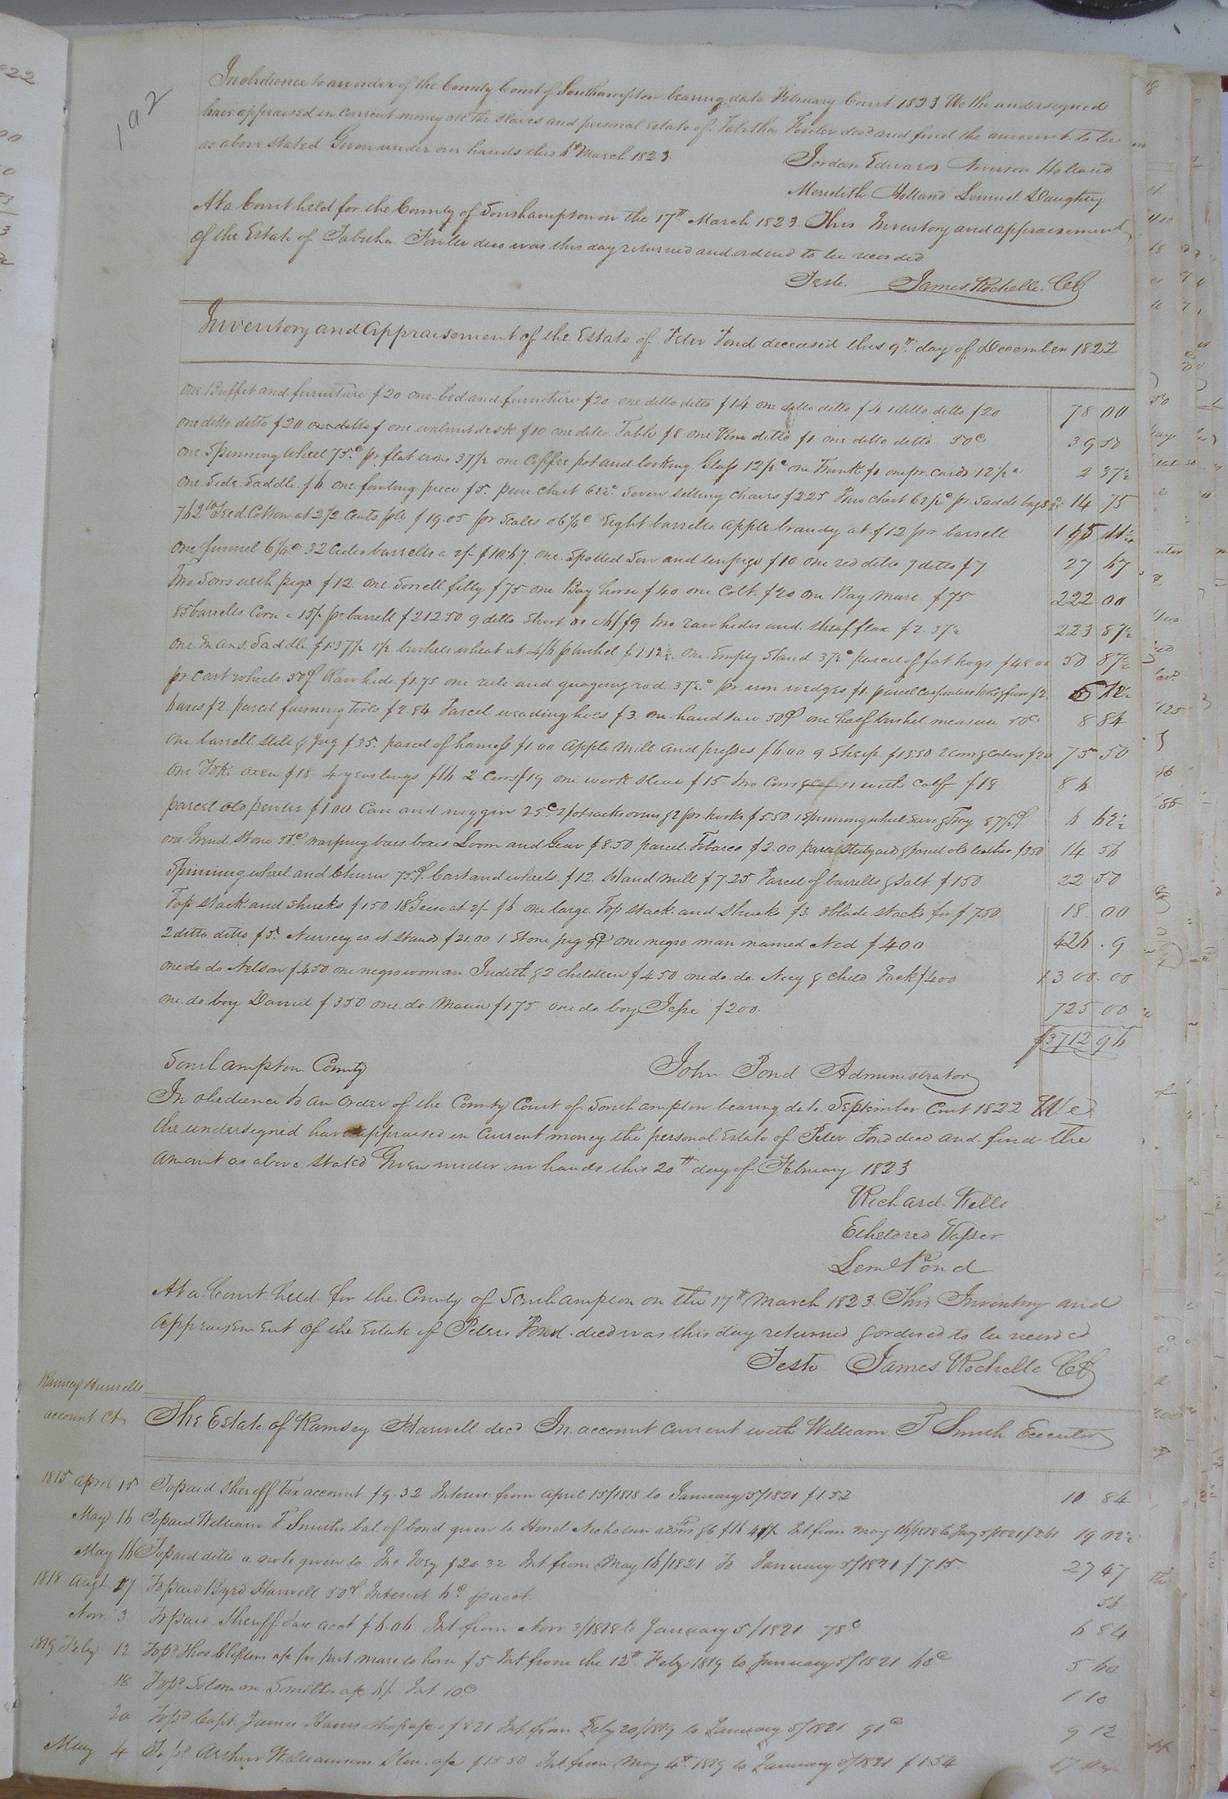 192
In obedience to an order of the County Court of Southampton bearing date February Court 1823 We the undersigned
have appraised in current money all the slaves and personal Estate of Tabitha Fowler decd and find the amount to be
as above stated Given under our hands this March 1823
Jordan Edwards Holland
Meredith Holland Lemuel Daughtry
At a Court held for the County of Southampton on the 17th March 1823 This Inventory and appraisement
of the Estate of Tabitha Fowler decd was this day returned and ordered to be recorded
Teste. James Rochelle CC
Inventory and Appraisement of the Estate of Peter Pond deceased this 9th day of December 1822
one Buffet and furniture $20 one bed and furniture $20 one ditto ditto $14 one ditto ditto $4 1 ditto ditto $20 78 00
one ditto ditto $20 one walnut desk $10 one ditto Table $8 one Pine ditto $1 one ditto ditto 50c 39 50
one Spinning wheel 75c pr flat irons 37½ one Coffee pot and looking Glass 12½c one Trunk $1 one pr cards 12½c 2 37½
one Side Saddle $6 one fowling piece $5. pine chest 62½c Seven setting chairs $2.25 Pine chest 62½c pr Saddle bags 14 75
762 lb Seed Cotton at 2½ cents $19.05 pr Scales 6¼c Eight barrells apple brandy at $12 pr barrell
one funnel 6¼c 32 Cider barrells a 2/ $10.67 one Spotted Sow and ten pigs $10 one red ditto 7 ditto $7 27 67
Two Sows with pigs $12 one Sorrell filly $75 one Bay horse $40 one Colt $20 one Bay Mare $75 222 00
85 barrells Corn a 15/ pr barrell $212.50 9 ditto Short do $9 two raw hides and sheaf flax $2.37½ 223 87½
one mans Saddle $1.37½ 1½ bushels wheat at 4/6 p bushel $1.12½ one Empty Stand 37½c parcel of fat hogs $48 00 50 87½
pr cart wheels 50c Raw hide $1.75 one rule and gauging rod 37½c pr iron wedges $1 parcel carpenters tools $2
$2 parcel farming tools $2.84 Parcel weeding hoes $3 one hand saw 50c one half bushel measure 50c 8 84
one barrell still & Jug $35. parcel of harness $1.00 Apple Mill and presses $6.00 9 Sheep $13.50 2 cows & calves $20 75 50
one Yoke oxen $18 4 yearlings $16 2 Cows $19 one work steer $15 two Cows 1 with calf $18 86
parcel old pewter $1.00 Can and noggin 25c 2 potracks ovens & 2 pr hooks $5.50 1 Spinning wheel 87½c 6 62½
one Grind Stone 50c warping bars boxes Loom and Gear $8.50 parcel Tobacco $2.00 parcel old leather $3.50 14 56
Spinning wheel and Churn 75c Cart and wheels $12. Hand mill $7.25 Parcel of barrells & Salt $1.50 22 50
Top stack and shucks $1.50 18 Geese at 2/ $6 one large Top stack and shucks $3 3 blade stacks for $7.50 18 00
2 ditto ditto $5. Nursery as it stands $21.00 1 Stone jug 9c one negro man named Ned $400 426 . 9
one do do Nelson $450 one negro woman Judith & 2 children $450 one do. do. Nicy & child Jack $400 1300 00
one do. boy David $350 one do. Maria $175 one do boy Jesse $200. 725 00
$3712 96
Southampton County John Pond Administrator
In obedience to an order of the County Court of Southampton bearing date September Court 1822 We
the undersigned have appraised in Current money the personal Estate of Peter Pond decd and find the
amount as above stated Given under our hands this 20th day of February 1823
Richard Wells
Etheldred Vasser
Leml Pond
At a Court held for the County of Southampton on the 17th March 1823 This Inventory and
Appraisement of the Estate of Peter Pond decd was this day returned & ordered to be recorded
Teste James Rochelle CC
Ramsey Harwells
account Ct.
The Estate of Ramsey Harwell decd In account current with William T Smith Executor
1818 April 15 To paid Sheriff Tax account $9.32 Interest from April 15/1818 to January 5/1821 $1.52 10 84
May 16 To paid William T Smiths bal of bond given to 19 02½
May 16 To paid ditto a note given to Ivey $20.32 Int from May 16/1821 to January 5/1821 $7.15 27 47
1818 Augt 27 To paid Byrd Harwell 50c Interest 6c 56
Nov. 3 To paid Sheriff Tax acct $6.06 Int from Nov 3/1818 to January 5/1821 78c 6 84
1819 Feby 12 $5 Int from the 12th Feby 1819 to January 5/1821 60c 5 60
18 To pd Solomon a/c 6/ Int 10c 1 10
20 To pd Capt. James Harris a/c $8.21 Int from Feby 20/1819 to January 5/1821 91c 9 12
May 4 To pd Arthur Williamson a/c $15.50 Int from May 4th 1819 to January 5/1821 $1.54